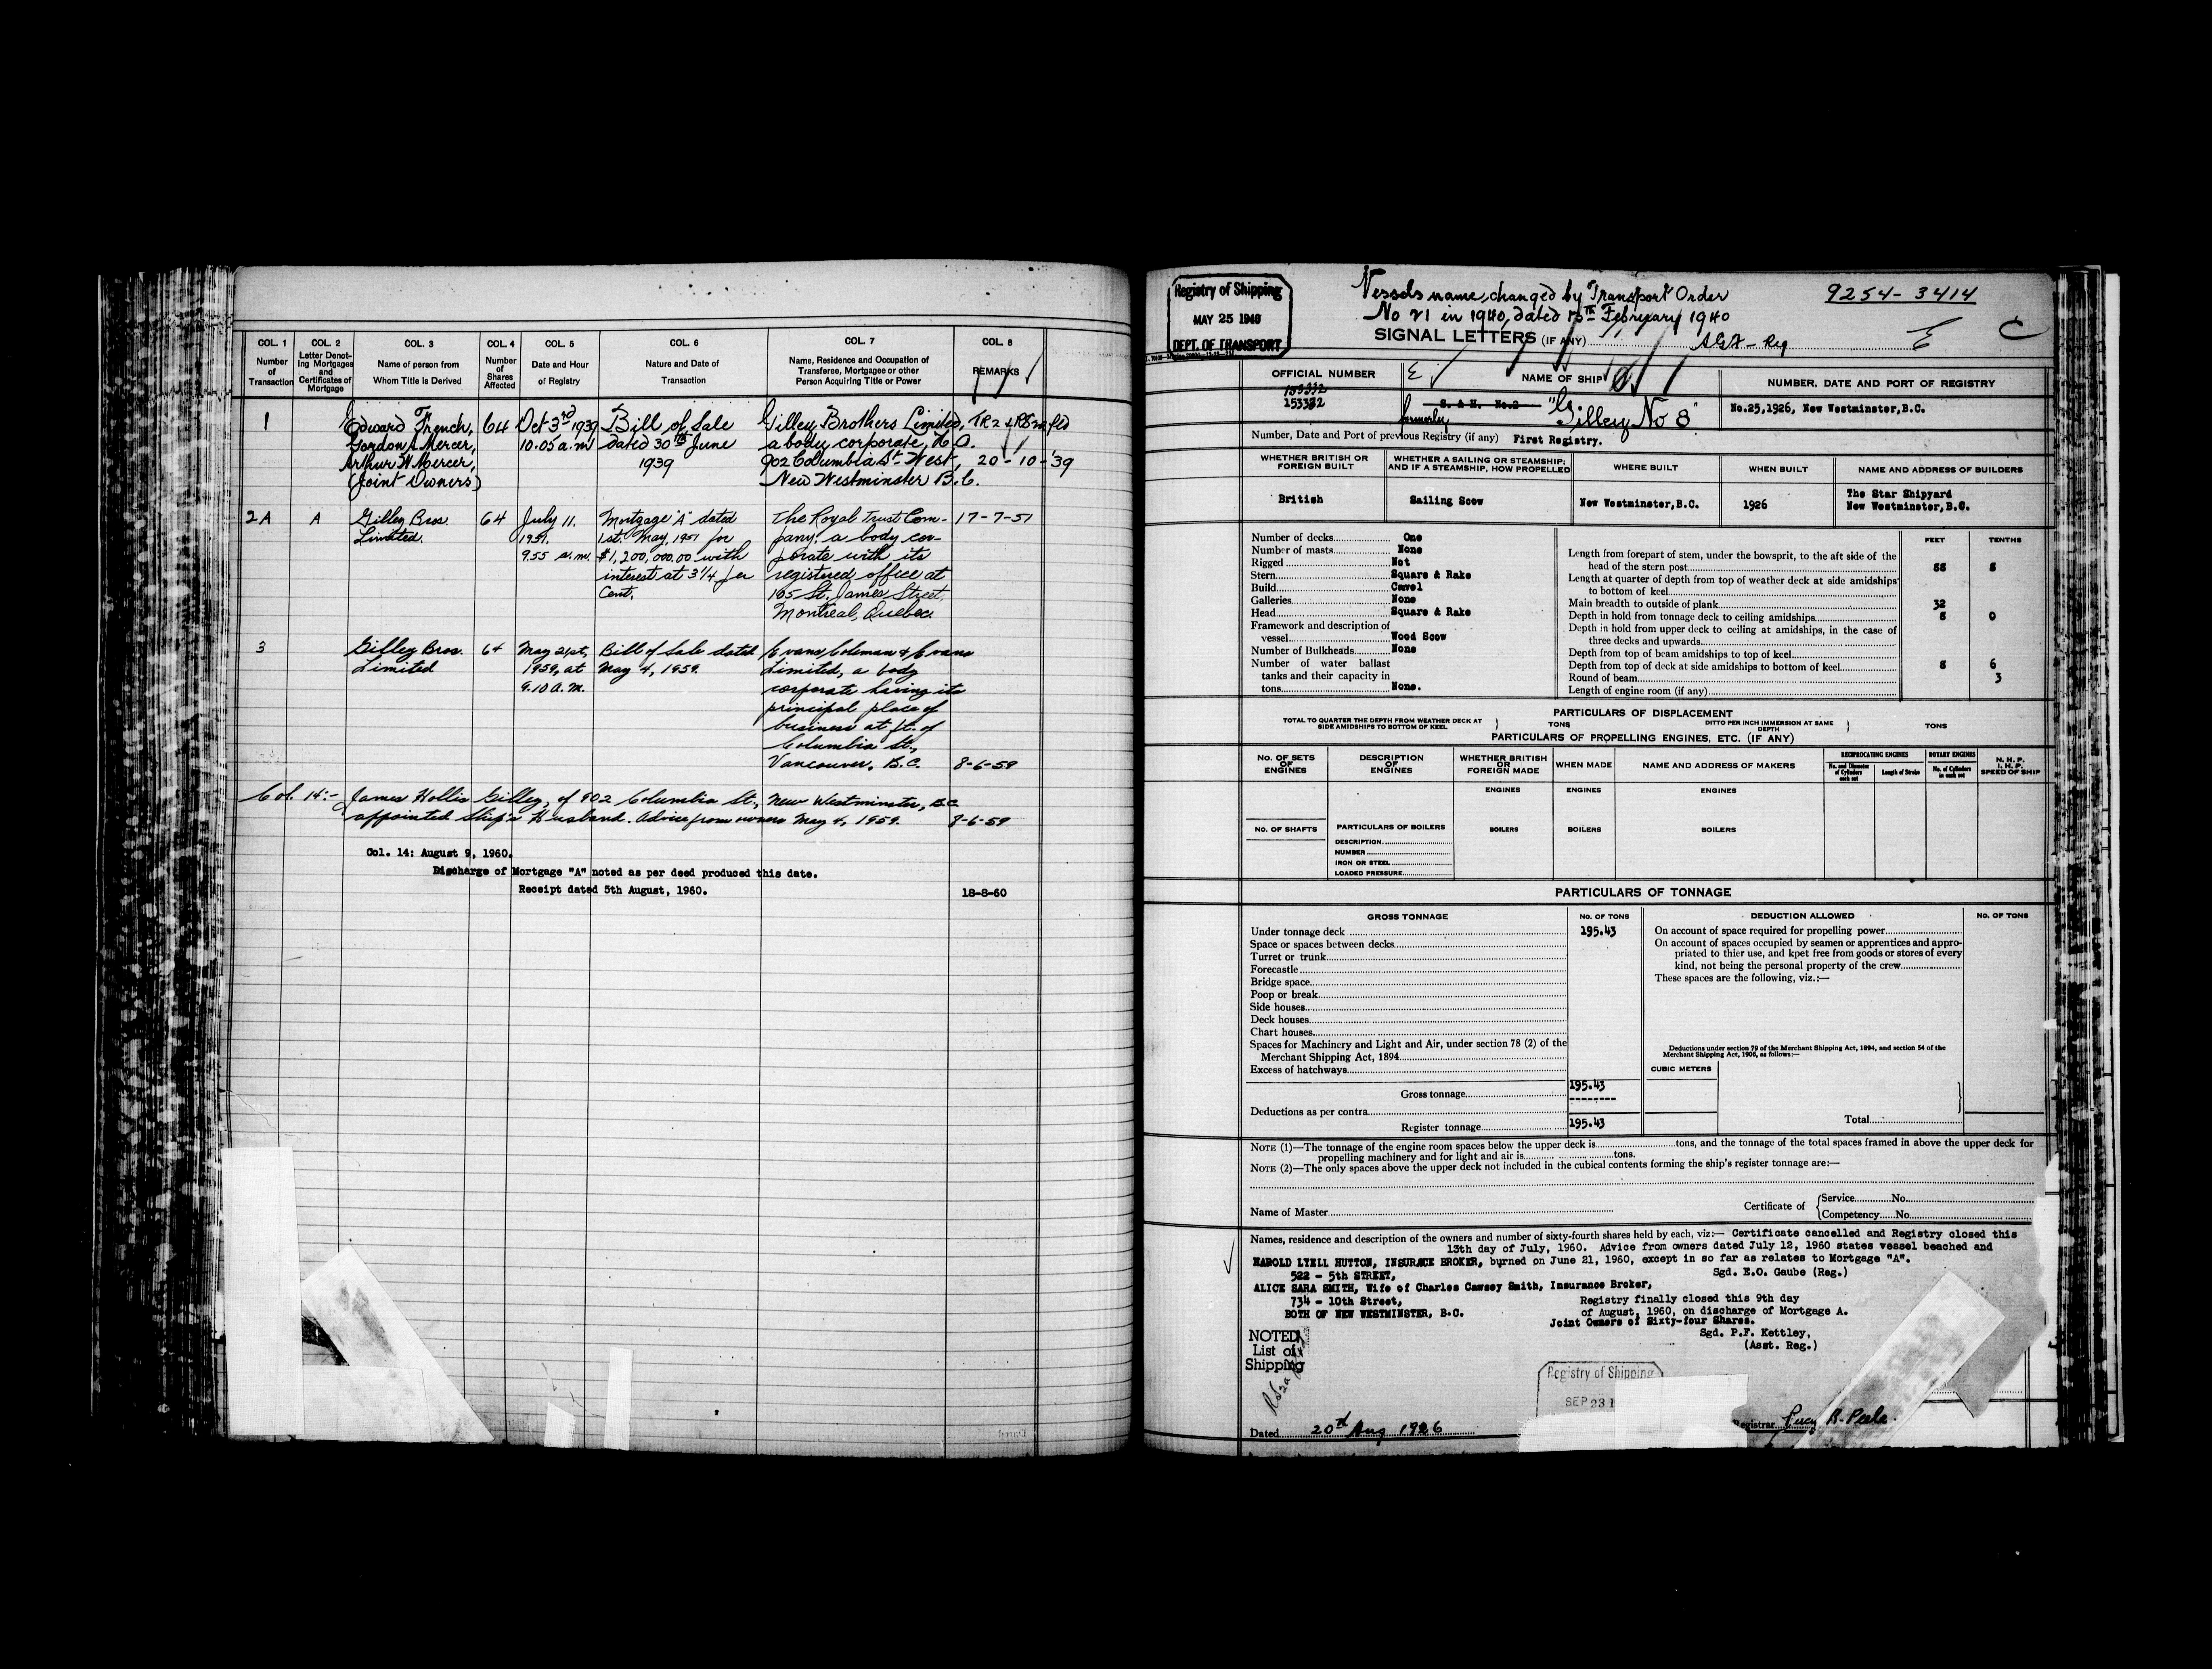 COL. 1
Number
of
Transaction
COL. 2
Letter Denot-
ing Mortgages
and
Certificates of
Mortgage
COL. 3
Name of person from
Whom Title is Derived
COL. 4
Number
of
Shares
Affected
COL. 5
Date and Hour
of Registry
COL. 6
Nature and Date of
Transaction
COL. 7
Name, Residence and Occupation of
Transferee, Mortgagee or other
Person Acquiring Title or Power
COL. 8
REMARKS
1
Edward French,
Gordon A Mercer,
Arthur W Mercer,
(Joint Owners)
64
Oct 3rd 1939
10.05 a.m.
Bill of Sale
dated 30th June
1939
Gilley Brothers Limited,
a body corporate, H.O.
902 Columbia St. West,
New Westminster B.C.
20-10-'39
2A
A
Gilley Bros.
Limited.
64
July 11.
1951.
9.55 a.m.
Mortgage "A" dated
1st. May, 1951 for
$1,200,000.00 with
interest at 3 1/4 per
Cent.
The Royal Trust Com-
pany, a body cor-
porate with its
registered office at
165 St. James Street,
Montreal, Quebec.
17-7-51
3
Gilley Bros.
Limited
64
May 21st,
1959, at
9.10 a.m.
Bill of Sale dated
May 4, 1959.
Evans Coleman & Evans
Limited, a body
corporate having its
principal place of
business at ft. of
Columbia St.,
Vancouver, B.C.
8-6-59
Col. 14:- James Hollis Gilley, of 902 Columbia St., New Westminster, B.C
appointed Ship's Husband. Advice from owners May 4, 1959.
8-6-59
Col. 14: August 9, 1960.
Discharge of Mortgage "A" noted as per deed produced this date.
Receipt dated 5th August, 1960.
18-8-60
Registry of Shipping
MAY 25 1940
DEPT. OF TRANSPORT
Vessels name, changed by Transport Order
No 21 in 1940, dated February 1940
9254-3414
SIGNAL LETTERS (IF ANY)
E
C
OFFICIAL NUMBER
153332
153332
NAME OF SHIP
S. & H. No.2
formerly
"Gilley No 8"
NUMBER, DATE AND PORT OF REGISTRY
No.25,1926, New Westminster,B.C.
Number, Date and Port of previous Registry (if any) First Registry.
WHETHER BRITISH OR
FOREIGN BUILT
British
WHETHER A SAILING OR STEAMSHIP;
AND IF A STEAMSHIP, HOW PROPELLED
Sailing Scow
WHERE BUILT
New Westminster,B.C.
WHEN BUILT
1926
NAME AND ADDRESS OF BUILDERS
The Star Shipyard
New Westminster,B.C.
Number of decks One
Number of masts None
Rigged Not
Stern Square & Rake
Build Cawel
Galleries None
Head Square & Rake
Framework and description of
vessel Wood Scow
Number of Bulkheads None
Number of water ballast
tanks and their capacity in
tons None.
FEET
TENTHS
Length from forepart of stem, under the bowsprit, to the aft side of the
head of the stern post 88 8
Length at quarter of depth from top of weather deck at side amidships
to bottom of keel
Main breadth to outside of plank 32
Depth in hold from tonnage deck to ceiling amidships 8 0
Depth in hold from upper deck to ceiling at amidships, in the case of
three decks and upwards
Depth from top of beam amidships to top of keel
Depth from top of deck at side amidships to bottom of keel 8 6
Round of beam 3
Length of engine room (if any)
PARTICULARS OF DISPLACEMENT
TOTAL TO QUARTER THE DEPTH FROM WEATHER DECK AT
SIDE AMIDSHIPS TO BOTTOM OF KEEL
TONS
DITTO PER INCH IMMERSION AT SAME
DEPTH
TONS
PARTICULARS OF PROPELLING ENGINES, ETC. (IF ANY)
No. OF SETS
OF
ENGINES
DESCRIPTION
OF
ENGINES
WHETHER BRITISH
OR
FOREIGN MADE
WHEN MADE
NAME AND ADDRESS OF MAKERS
RECIPROCATING ENGINES
No. and Diameter
of Cylinders
each set
Length of Stroke
ROTARY ENGINES
No. of Cylinders
in each set
N. H. P.
I. H. P.
SPEED OF SHIP
ENGINES
ENGINES
ENGINES
NO. OF SHAFTS
PARTICULARS OF BOILERS
DESCRIPTION
NUMBER
IRON OR STEEL
LOADED PRESSURE
BOILERS
BOILERS
BOILERS
PARTICULARS OF TONNAGE
GROSS TONNAGE
NO. OF TONS
DEDUCTION ALLOWED
NO. OF TONS
Under tonnage deck 195.43
Space or spaces between decks
Turret or trunk
Forecastle
Bridge space
Poop or break
Side houses
Deck houses
Chart houses
Spaces for Machinery and Light and Air, under section 78 (2) of the
Merchant Shipping Act, 1894
Excess of hatchways
Gross tonnage 195.43
Deductions as per contra
Register tonnage 195.43
On account of space required for propelling power
On account of spaces occupied by seamen or apprentices and appro-
priated to thier use, and kpet free from goods or stores of every
kind, not being the personal property of the crew
These spaces are the following, viz.:—
Deductions under section 79 of the Merchant Shipping Act, 1894, and section 54 of the
Merchant Shipping Act, 1906, as follows:—
CUBIC METERS
Total
NOTE (1)—The tonnage of the engine room spaces below the upper deck is tons, and the tonnage of the total spaces framed in above the upper deck for
propelling machinery and for light and air is tons.
NOTE (2)—The only spaces above the upper deck not included in the cubical contents forming the ship's register tonnage are:—
Name of Master
Certificate of
Service No.
Competency No.
Names, residence and description of the owners and number of sixty-fourth shares held by each, viz:— Certificate cancelled and Registry closed this
13th day of July, 1960. Advice from owners dated July 12, 1960 states vessel beached and
HAROLD LYELL HUTTON, INSURACE BROKER, burned on June 21, 1960, except in so far as relates to Mortgage "A".
522 - 5th STREET,
Sgd. E.O. Gaube (Reg.)
ALICE SARA SMITH, Wife of Charles Cawsey Smith, Insurance Broker,
734 - 10th Street,
Registry finally closed this 9th day
BOTH OF NEW WESTMINSTER, B.C.
of August, 1960, on discharge of Mortgage A.
Joint Owners of Sixty-four Shares.
Sgd. P.F. Kettley,
(Asst. Reg.)
NOTED
List of
Shipping
Registry of Shipping
SEP 23 1
Dated 20th Aug 1926
Registrar